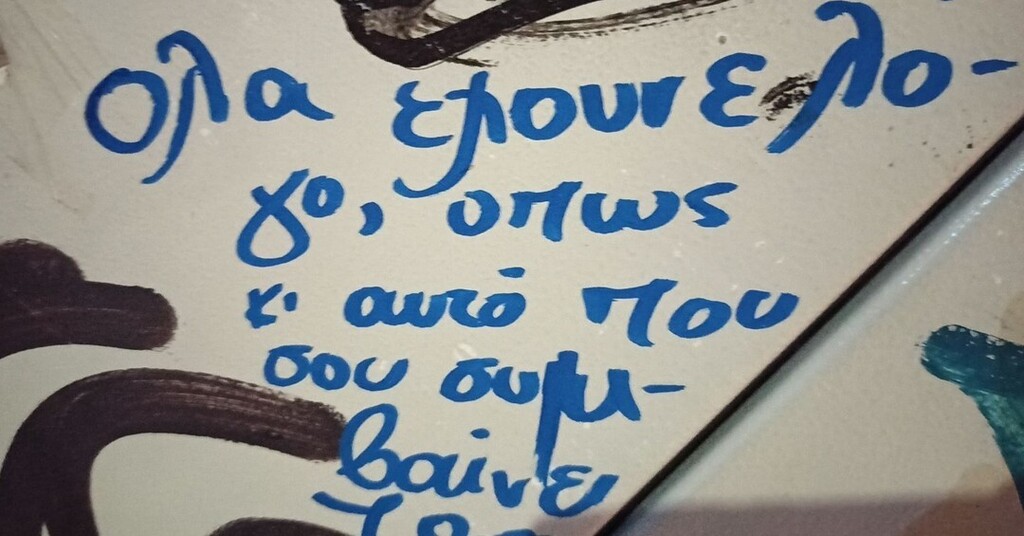 Ολα εχουνε λο-
γο, οπως
κι αυτό που
σου συμ-
βαίνει